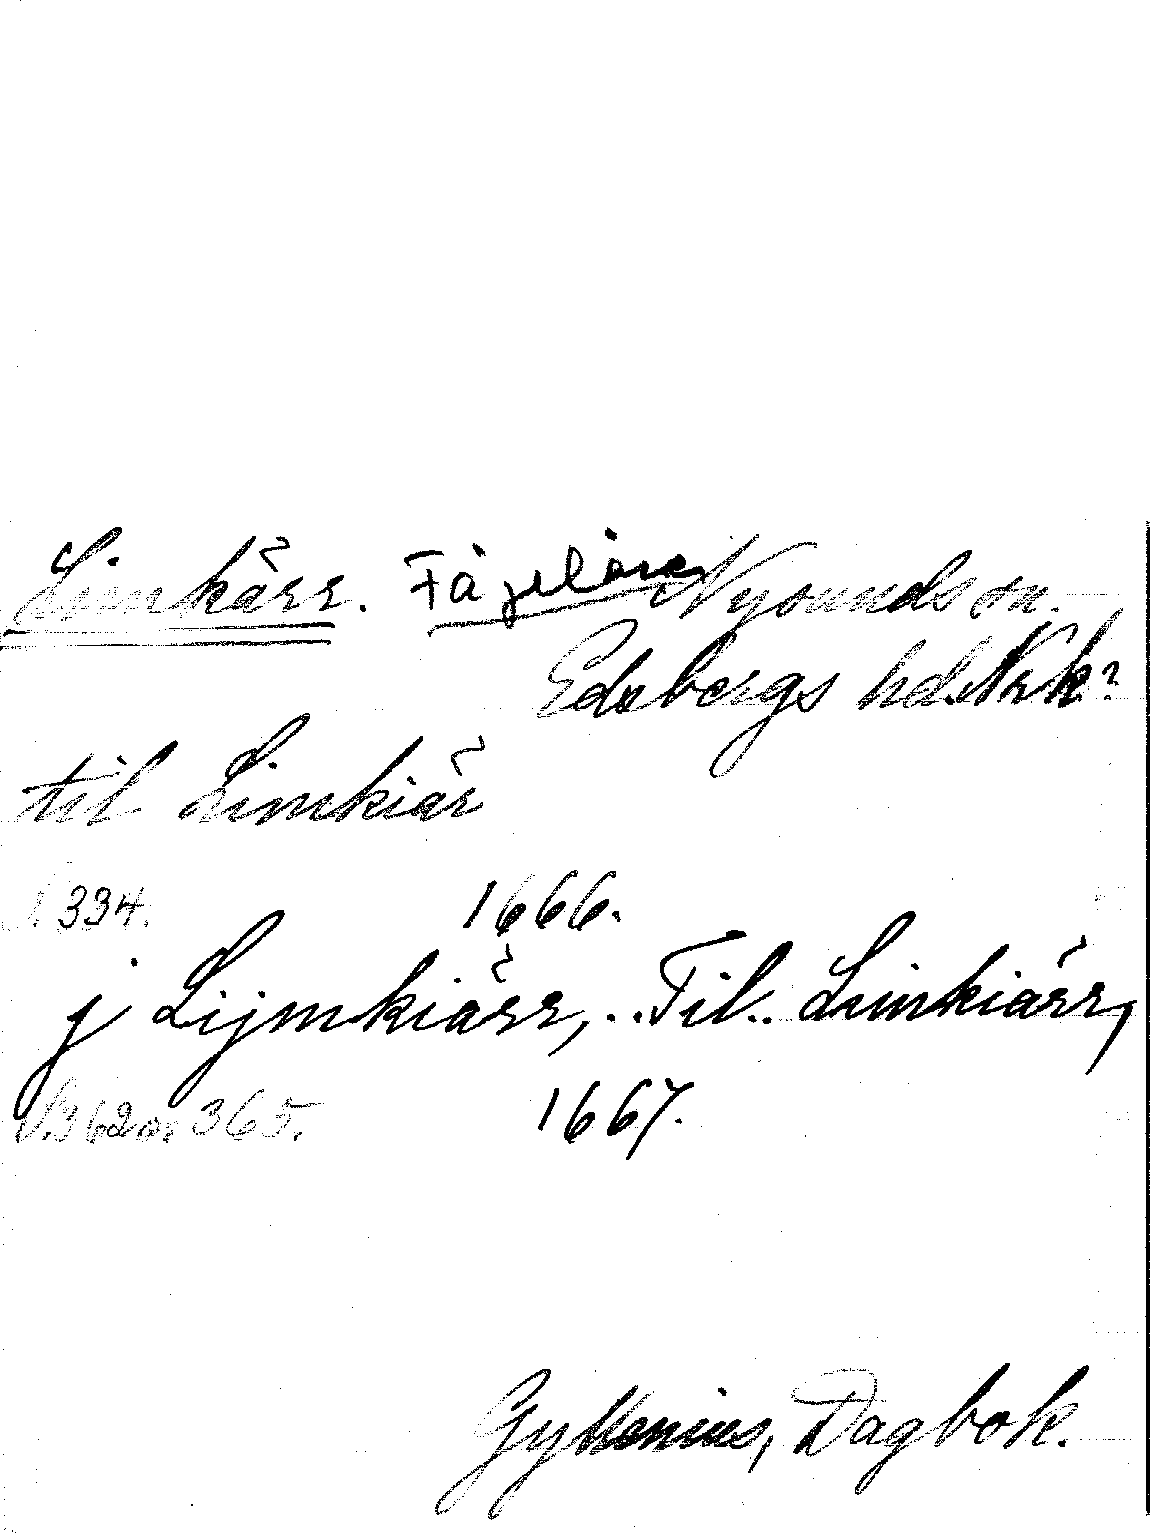 Limkärr. Fågelåsen Nysunds sn.
Edsbergs hd. Nrk?
til Limkiär
S. 334. 1666.
j Lijmkiärr, .. Til .. Limkiärr,
S. 362 o. 365. 1667.
Gyllenius, Dagbok.